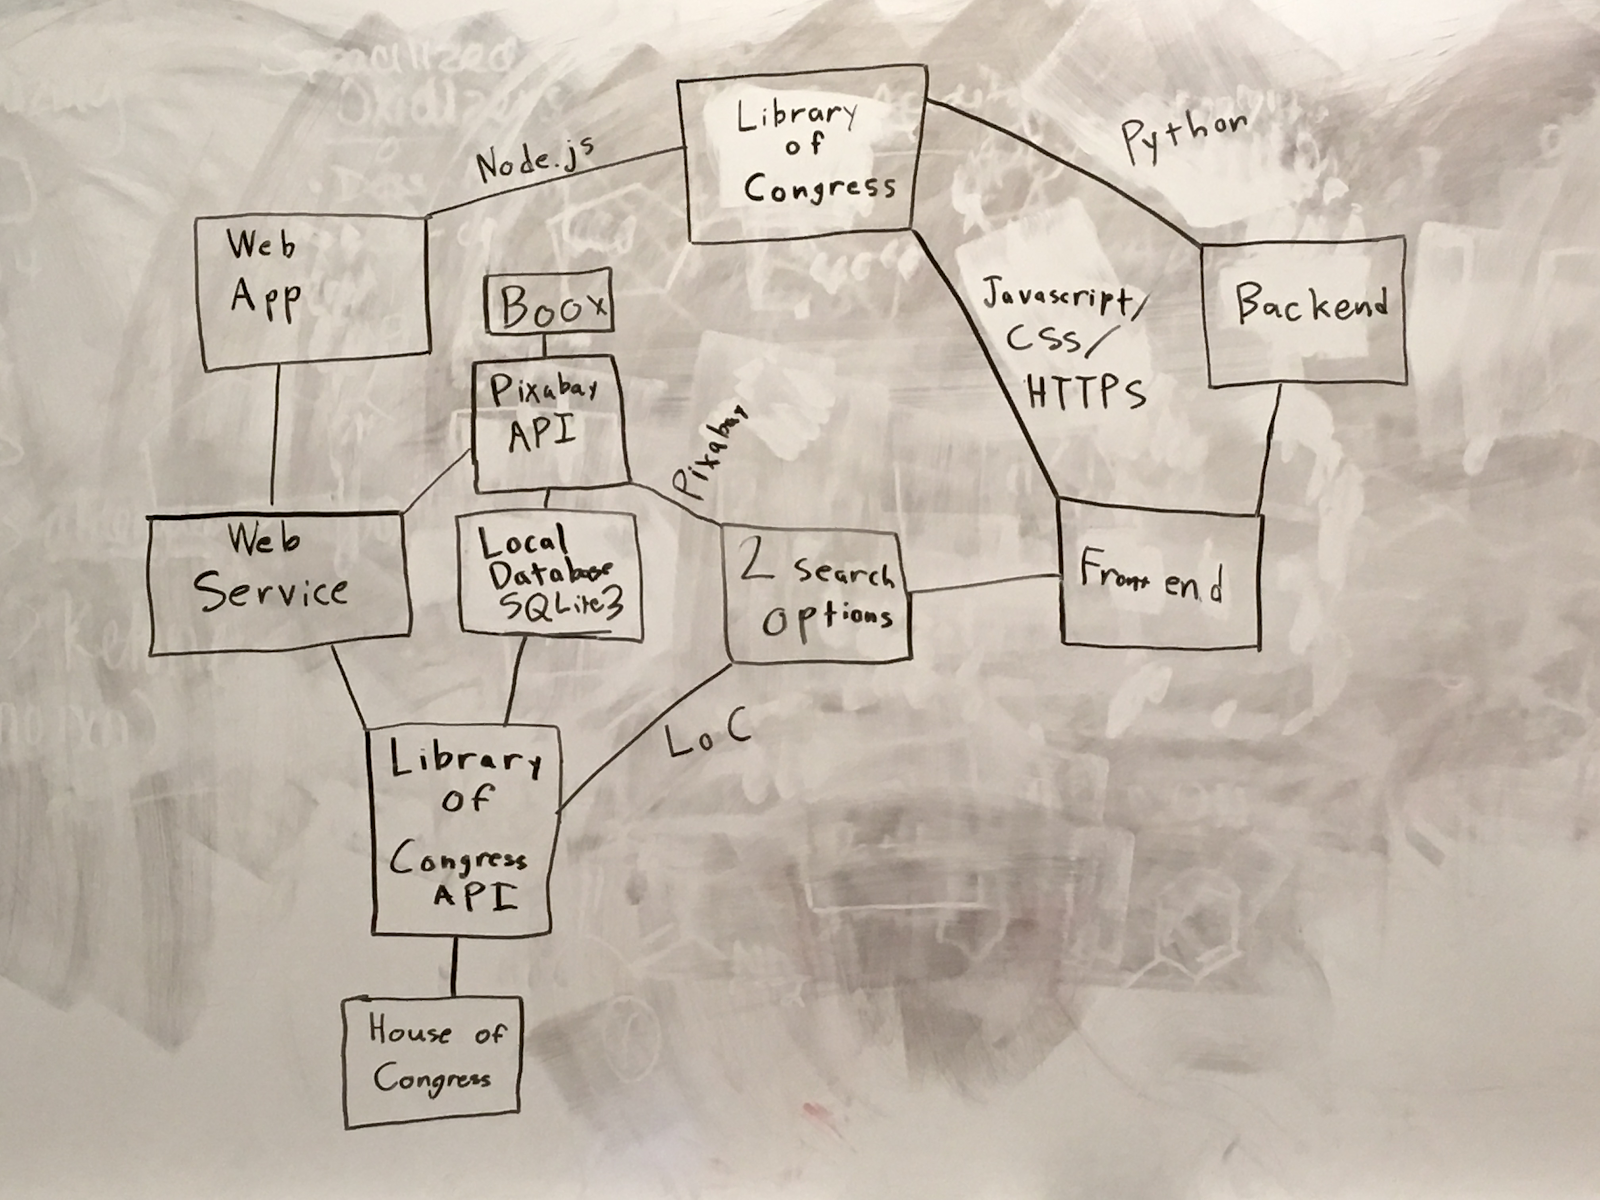 Library
of
Congress
Node.js
Python
Web
App
Boox
Javascript/
CSS/
HTTPS
Backend
Pixabay
API
Pixabay
Web
Service
Local
Database
SQLite3
2 search
options
Front end
LoC
Library
of
Congress
API
House of
Congress